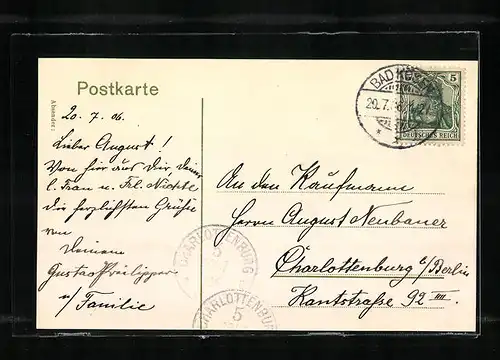 Postkarte
Absender:
20. 7. 06.
Lieber August!
Von hier aus Dir, deiner
l. Frau u. Frl. Nichte
die herzlichsten Grüße
von
Deinem
Gustav Philipper
u/ Familie
BAD
20.7.
5
DEUTSCHES REICH
An den Kaufmann
Herrn August Neubauer
Charlottenburg b/Berlin
Kantstraße 92 IIII.
CHARLOTTENBURG
5
CHARLOTTENBURG
5